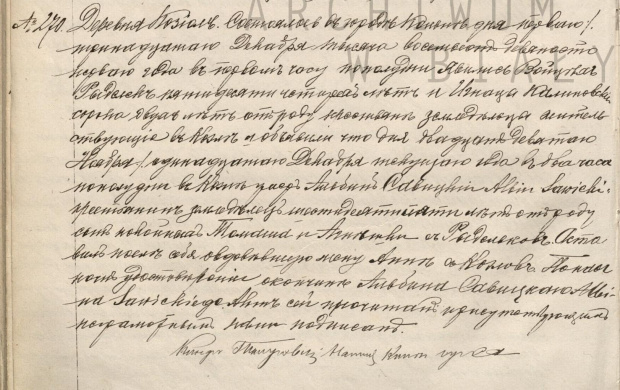 № 270. Деревня Козіолъ. Состоялось въ городѣ Кольнѣ дня перваго /
тринадцатаго Декабря тысяча восемьсотъ девяносто
перваго года въ первомъ часу пополудни Явились Войцѣхъ
пятидесяти четырехъ лѣтъ и Игнацъ Калиновскій
сорока двухъ лѣтъ отъ роду крестьяне земледѣльцы житель
ствующіе въ и объявили что дня двадцать девятаго
Ноября / одинадцатаго Декабря текущаго года въ два часа
пополудни въ умеръ Альбинъ Савицкій Albin Sawicki
крестьянинъ земледѣлецъ шестидесяти пяти лѣтъ отъ роду
сынъ покойныхъ Томаша и Агнешки съ Оста
вивъ послѣ себя овдовѣвшую жену Анну съ Козловъ. По нас
ночномъ удостовѣреніи о кончинѣ Альбина Савицкаго Albi
na Sawickiego Актъ сей прочитанъ присутствующимъ
неграмотнымъ нами подписанъ.